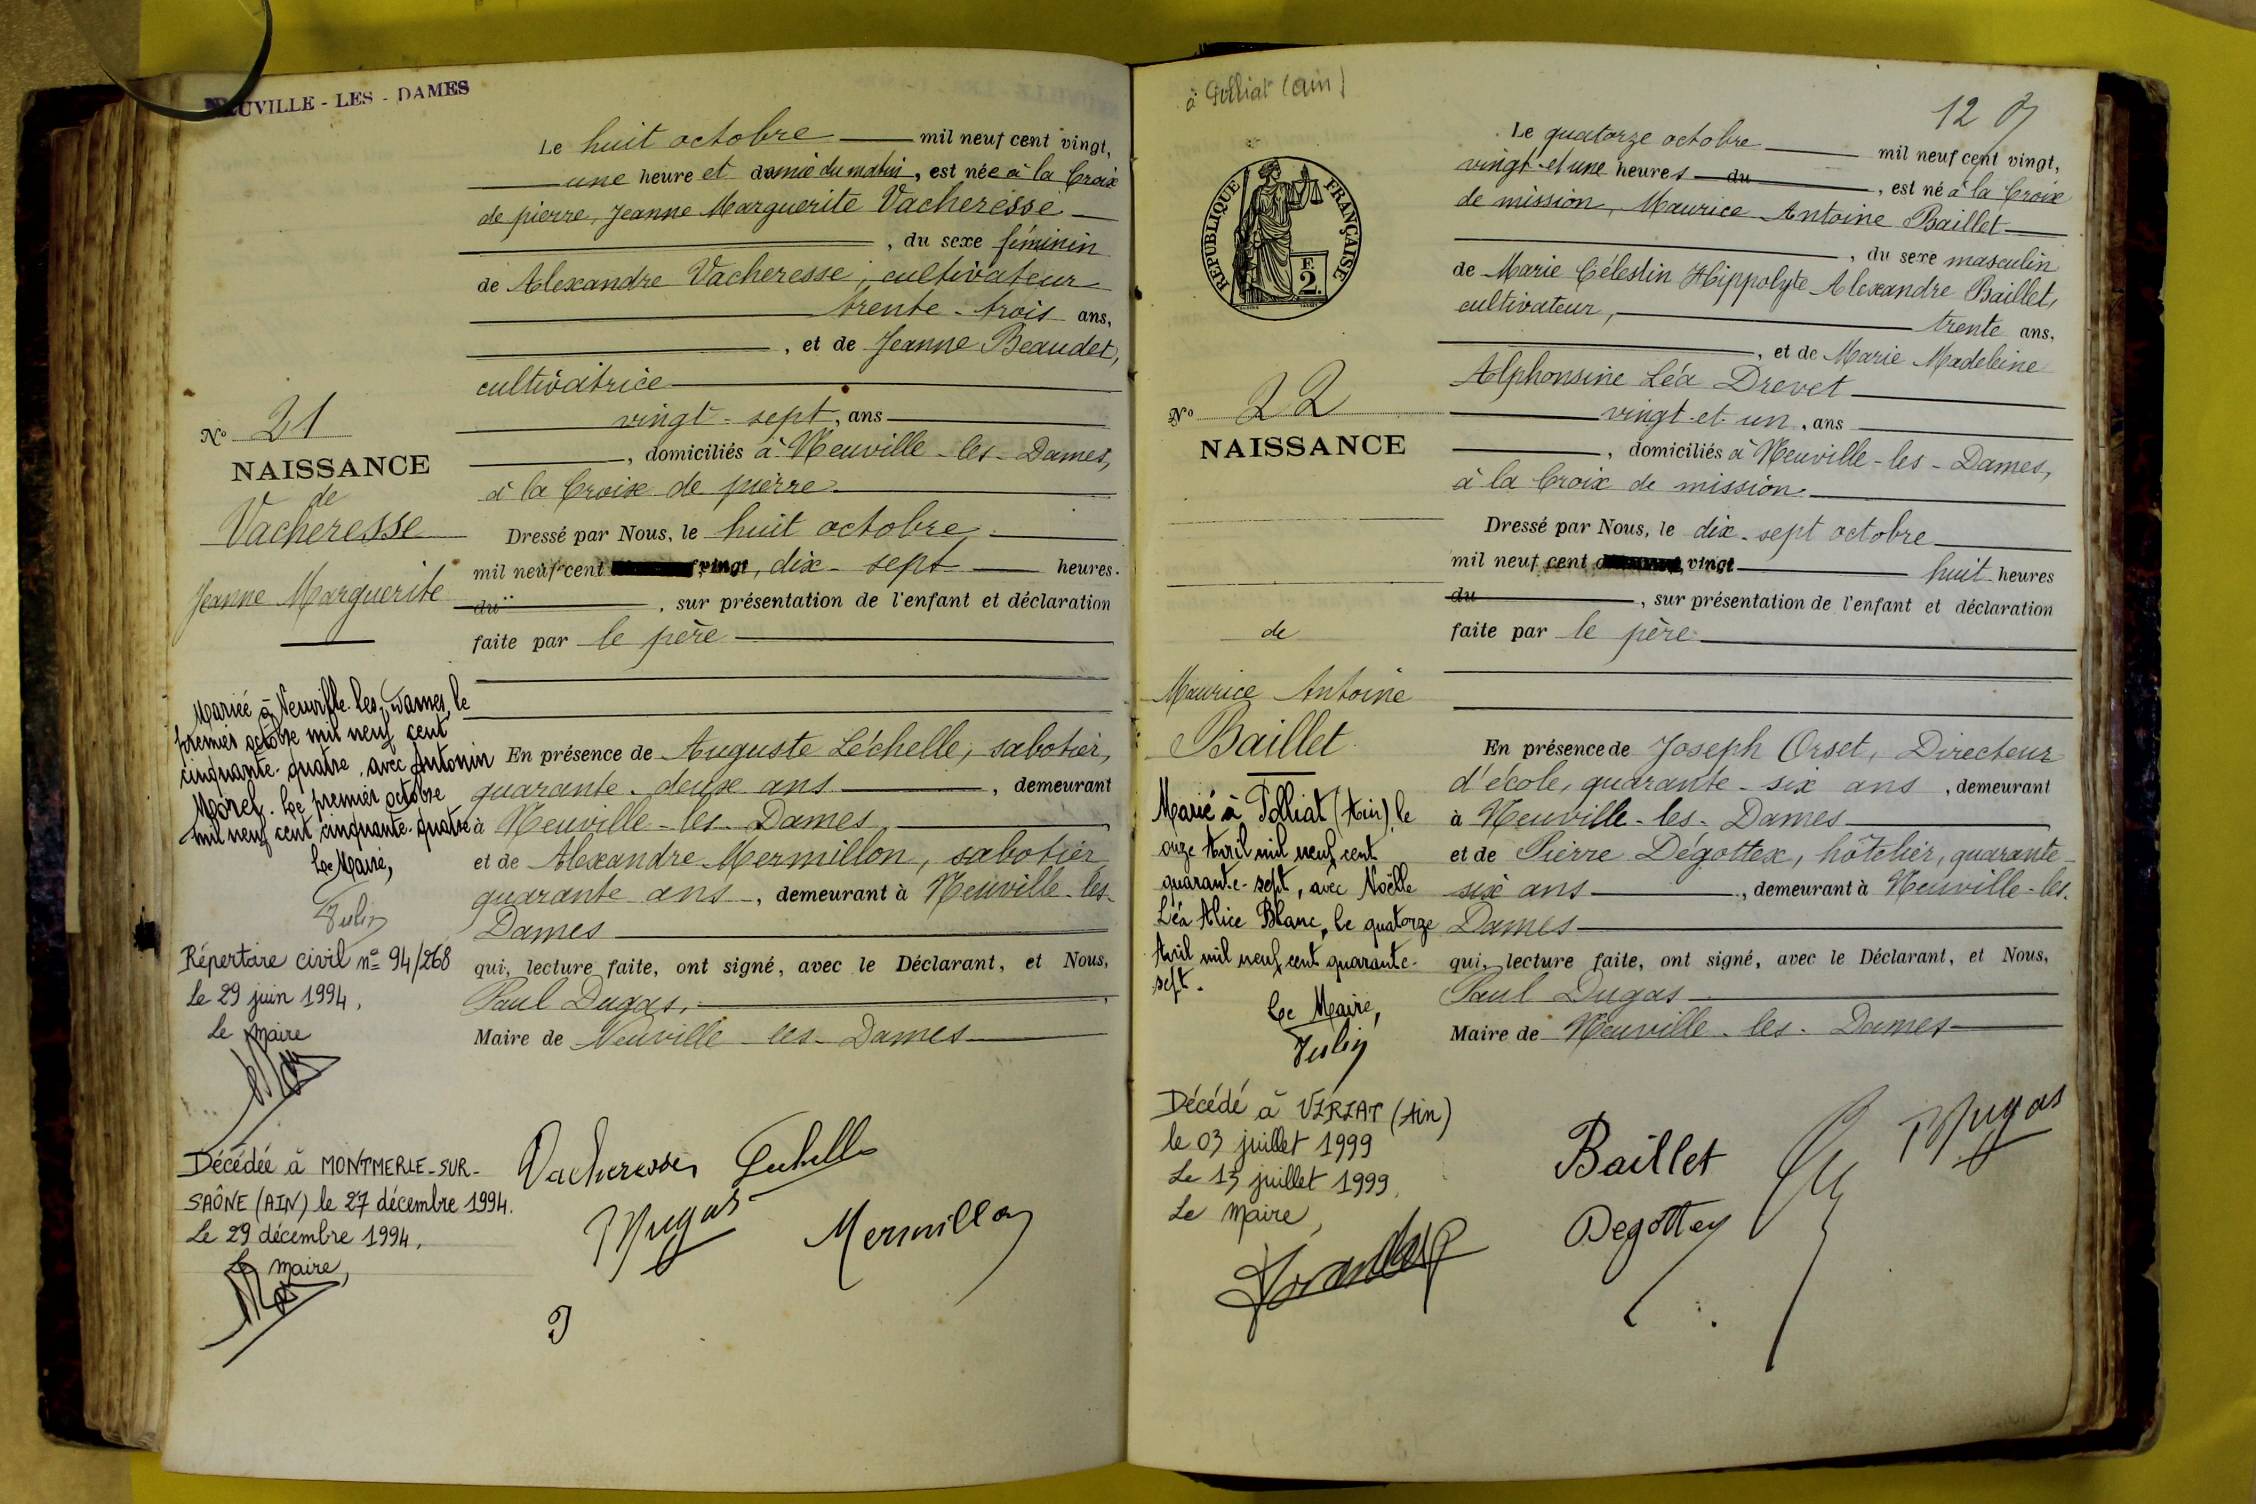 NEUVILLE - LES - DAMES
Le huit octobre mil neuf cent vingt,
une heure et demie du matin, est née à la Croix
de pierre, Jeanne Marguerite Vacheresse
, du sexe féminin
de Alexandre Vacheresse, cultivateur
trente-trois ans,
, et de Jeanne Beaudet,
cultivatrice
vingt-sept, ans
, domiciliés à Neuville-les-Dames,
à la Croix de pierre.
Dressé par Nous, le huit octobre
mil neuf cent vingt, dix-sept heures.
du , sur présentation de l'enfant et déclaration
faite par le père
En présence de Auguste Léchelle, sabotier,
quarante-deux ans , demeurant
à Neuville-les-Dames
et de Alexandre Mermillon, sabotier
quarante ans , demeurant à Neuville-les-
Dames
qui, lecture faite, ont signé, avec le Déclarant, et Nous,
Paul Dugas,
Maire de Neuville-les-Dames
Vacheresse Léchelle
Dugas Mermillon
No 21
NAISSANCE
de
Vacheresse
Jeanne Marguerite
Mariée à Neuville-les-Dames, le
premier octobre mil neuf cent
cinquante-quatre, avec Antonin
Morel. Le premier octobre
mil neuf cent cinquante-quatre
Le Maire,
Répertoire civil no 94/268
Le 29 juin 1994.
Le Maire
Décédée à MONTMERLE-SUR-
SAÔNE (AIN) le 27 décembre 1994.
Le 29 décembre 1994.
Le maire,
à Polliat (Ain)
12
RÉPUBLIQUE FRANÇAISE
F.
2.
Le quatorze octobre mil neuf cent vingt,
vingt-et-une heures du , est né à la Croix
de mission, Maurice Antoine Baillet
, du sexe masculin
de Marie Célestin Hippolyte Alexandre Baillet,
cultivateur, trente ans,
, et de Marie Madeleine
Alphonsine Léa Drevet
vingt-et-un, ans
, domiciliés à Neuville-les-Dames,
à la Croix de mission.
Dressé par Nous, le dix-sept octobre
mil neuf cent vingt huit heures
du , sur présentation de l'enfant et déclaration
faite par le père
En présence de Joseph Orset, Directeur
d'école, quarante-six ans , demeurant
à Neuville-les-Dames
et de Pierre Dégottex, hôtelier, quarante-
six ans , demeurant à Neuville-les-
Dames
qui, lecture faite, ont signé, avec le Déclarant, et Nous,
Paul Dugas
Maire de Neuville-les-Dames
Baillet Dugas
Degottex
No 22
NAISSANCE
de
Maurice Antoine
Baillet
Marié à Polliat (Ain), le
onze Avril mil neuf cent
quarante-sept, avec Noëlle
Léa Alice Blanc, le quatorze
Avril mil neuf cent quarante-
sept.
Le Maire,
Décédé à VIRIAT (Ain)
le 03 juillet 1999
Le 13 juillet 1999.
Le Maire,